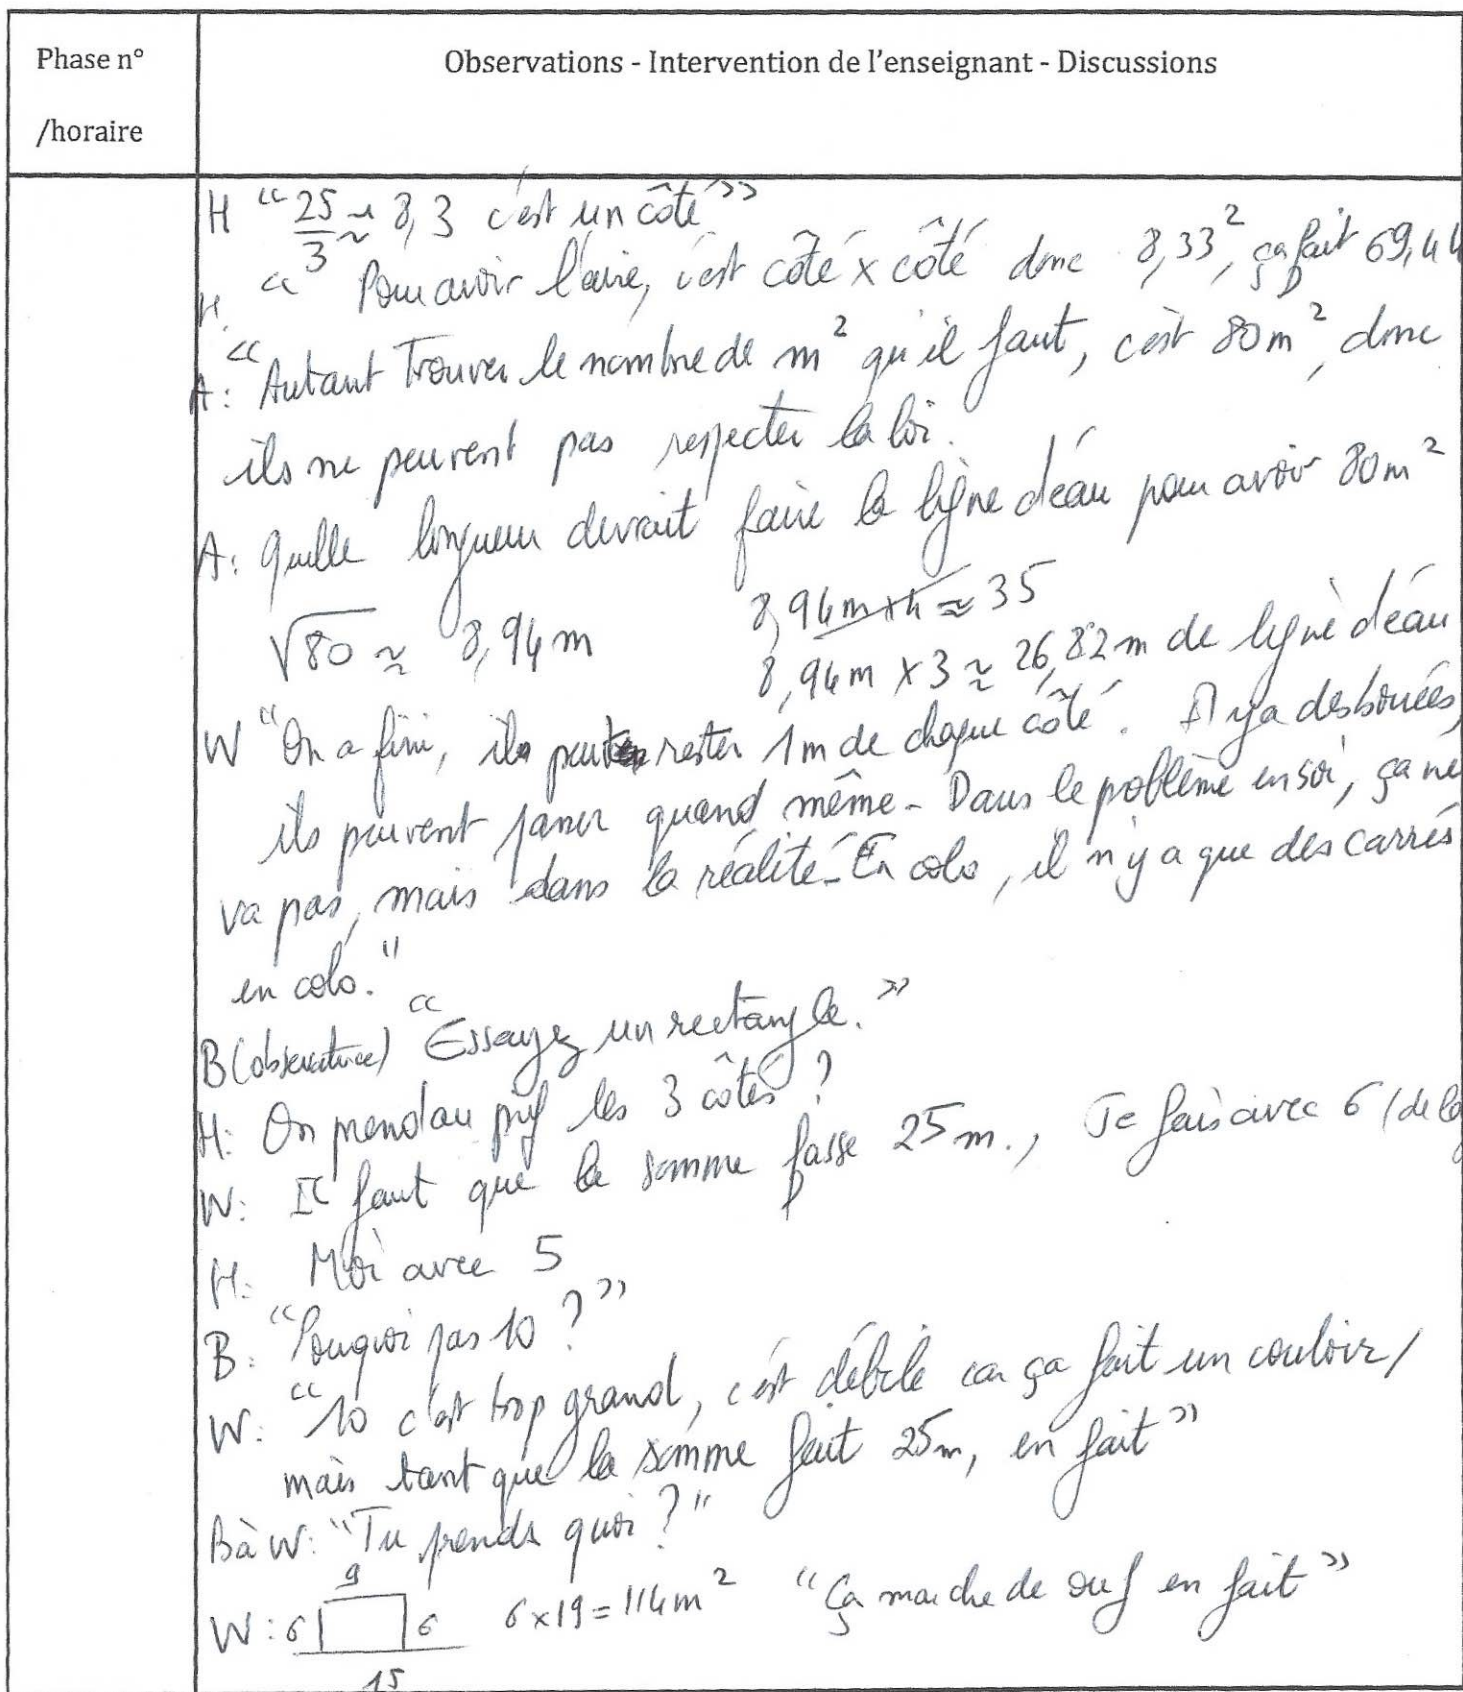 Phase n°
/horaire
Observations - Intervention de l'enseignant - Discussions
H " 25/3 ≈ 8,3 c'est un côté "
H. " Pour avoir l'aire, c'est côté x côté donc 8,33², ça fait 69,44
A: " Autant trouver le nombre de m² qu'il faut, c'est 80m², donc
ils ne peuvent pas respecter la loi.
A: Quelle longueur devrait faire la ligne d'eau pour avoir 80m²
√80 ≈ 8,94m
8,94m x 4 ≈ 35
8,94m x 3 ≈ 26,82m de ligne d'eau
W " On a fini, ils peuvent rester 1m de chaque côté. Il y a des bouées,
ils peuvent passer quand même - Dans le problème en soi, ça ne
va pas, mais dans la réalité - En colo, il n'y a que des carrés
en colo. "
B (observatrice) " Essayez un rectangle. "
H: On prend au pif les 3 côtés ?
W: Il faut que la somme fasse 25m., Je fais avec 6 (de
H: Moi avec 5
B: " Pourquoi pas 10 ? "
W: " 10 c'est trop grand, c'est débile car ça fait un couloir /
mais tant que la somme fait 25m, en fait "
B à W: " Tu prends quoi ? "
9
W: 6 6 6 x 19 = 114m² " Ça marche de ouf en fait "
15